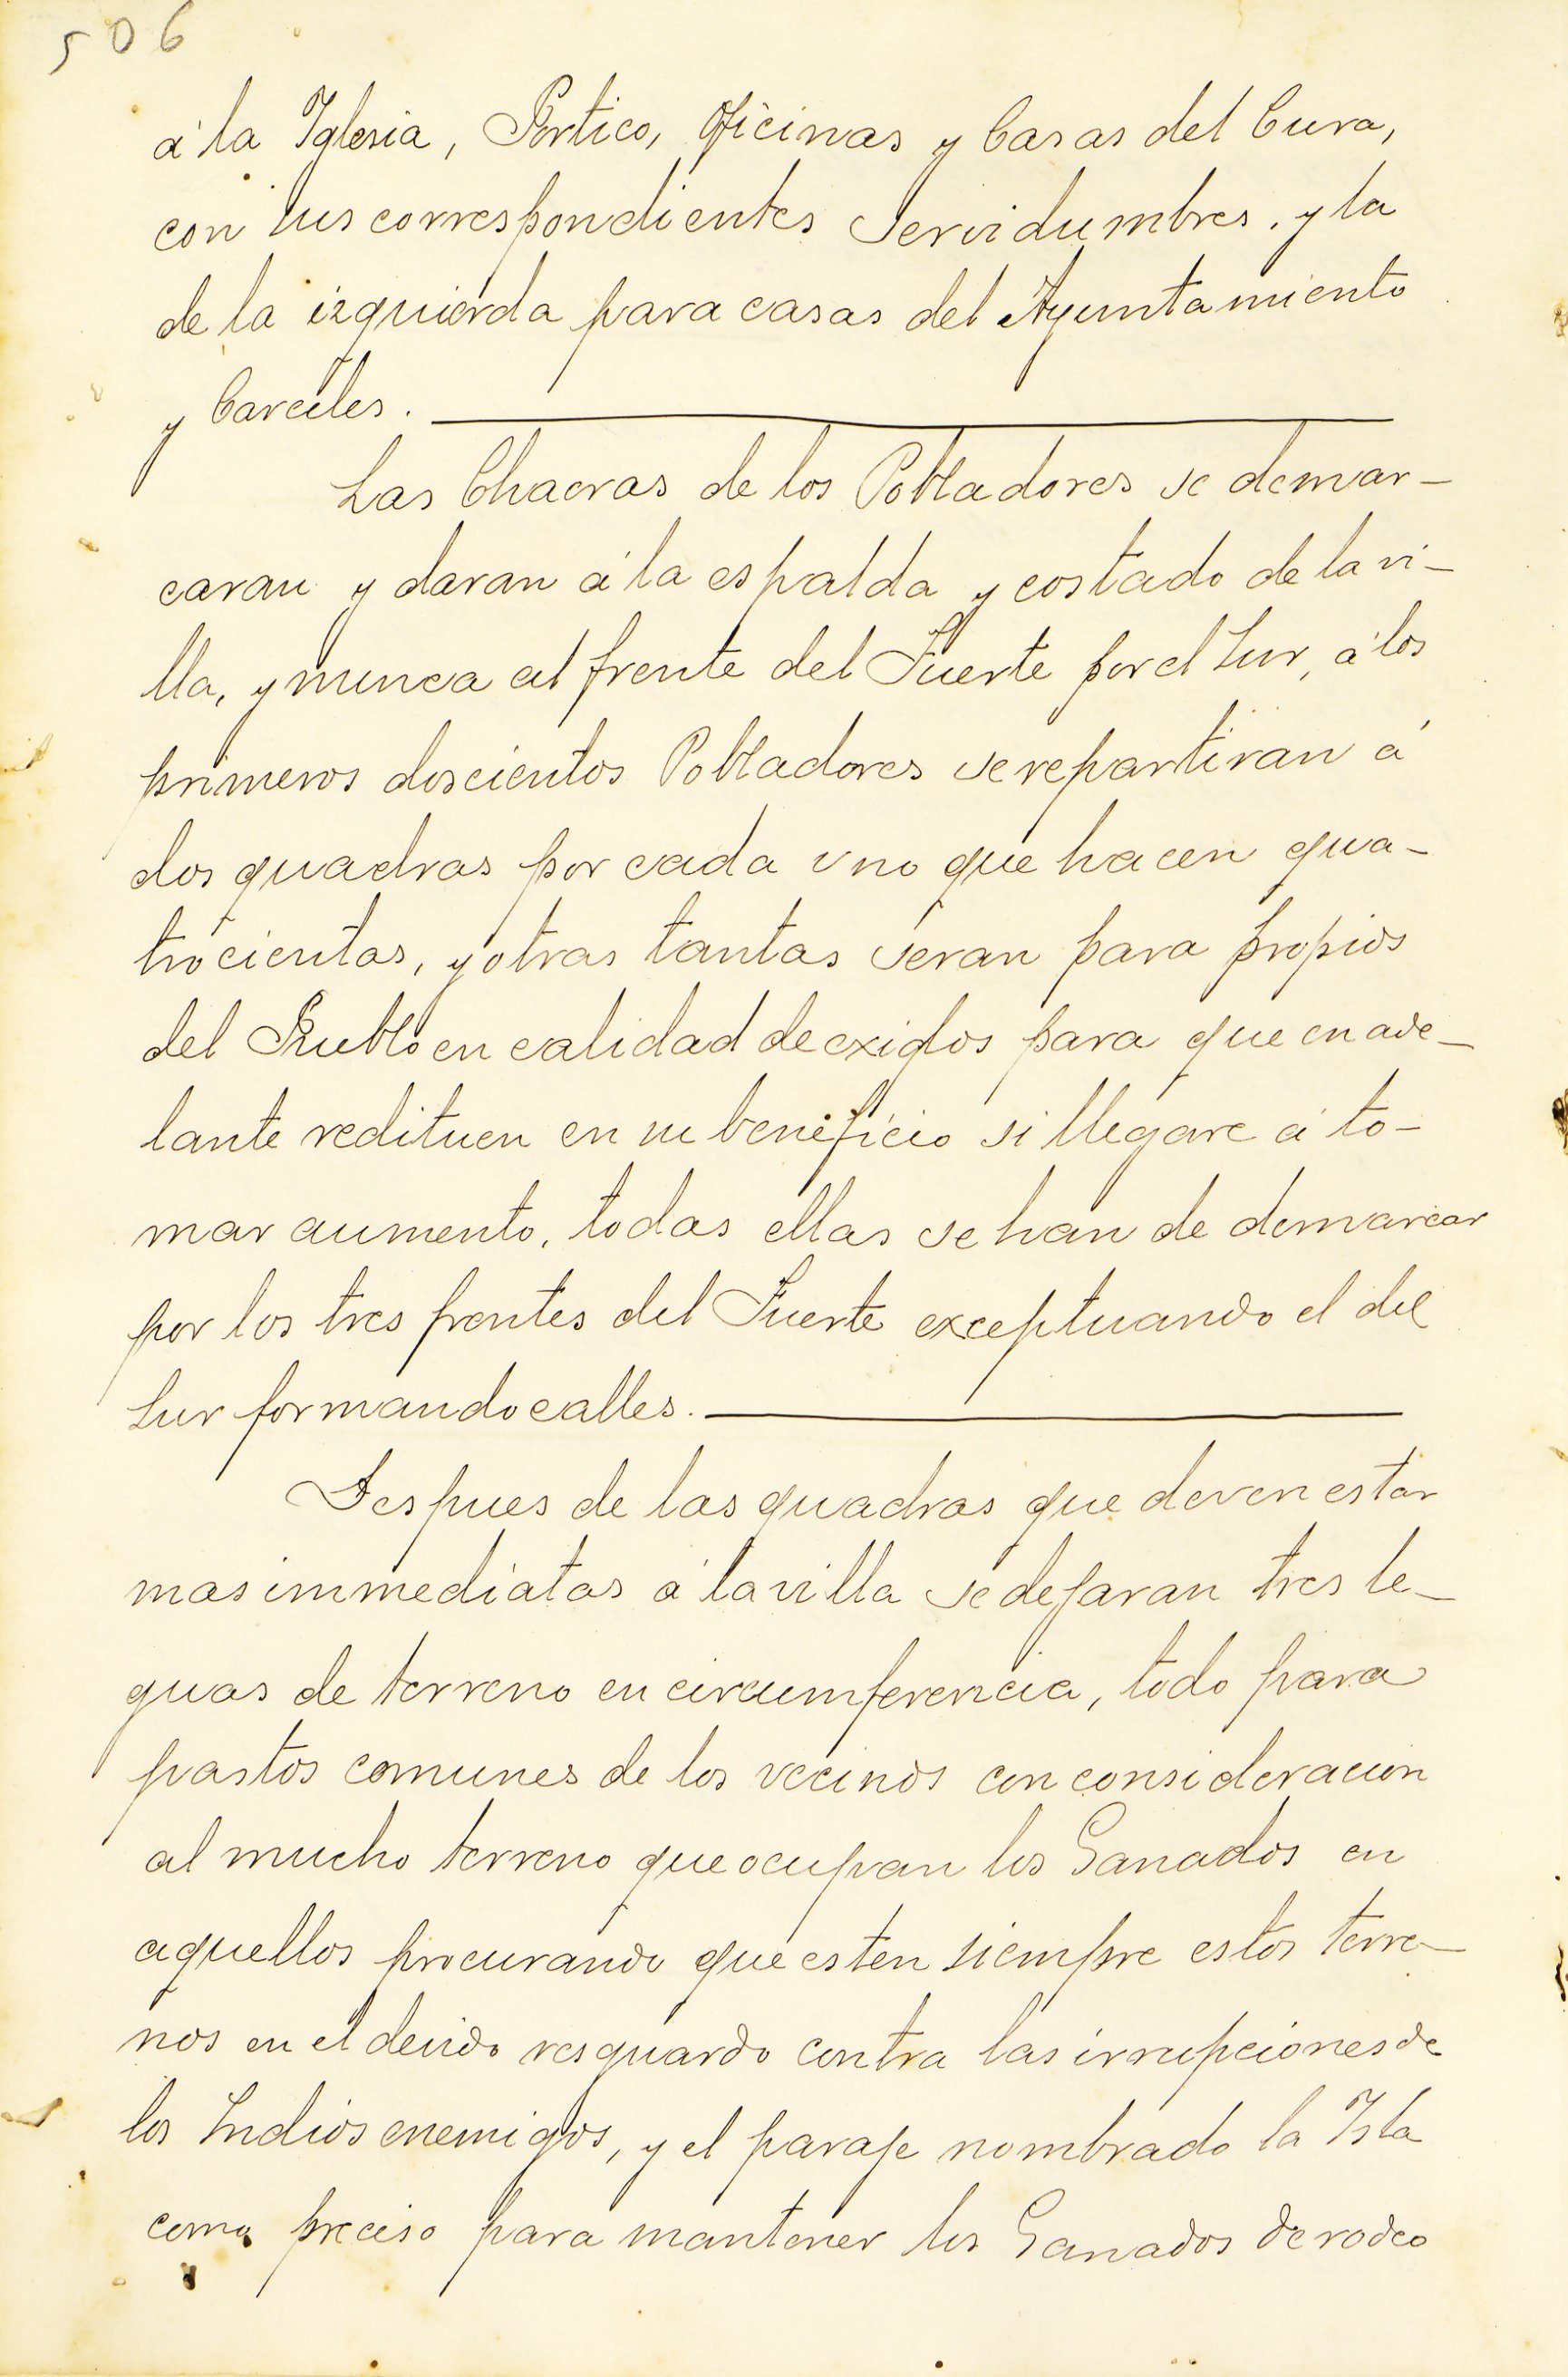 506
á la Iglesia, Portico, Oficinas y Casas del Cura,
con sus correspondientes servidumbres. y la
de la izquierda para casas del Ayuntamiento
y Carceles.
Las Chacras de los Pobladores se demar-
caran y daran á la espalda y costado de la vi-
lla, y nunca al frente del Fuerte por el Sur, á los
primeros doscientos Pobladores se repartiran á
dos quadras por cada vno que hacen qua-
trocientas, y otras tantas seran para propios
del Pueblo en calidad de exidos para que en ade-
lante redituen en su beneficio si llegare á to-
mar aumento, todas ellas se han de demarcar
por los tres frentes del Fuerte exceptuando el del
Sur formando calles.
Despues de las quadras que deven estar
mas immediatas á la villa se dejaran tres le-
guas de terreno en circumferencia, todo para
pastos comunes de los vecinos con consideracion
al mucho terreno que ocupan los Ganados en
aquellos procurando que esten siempre estos terre-
nos en el devido resguardo contra las irrupciones de
los Indios enemigos, y el paraje nombrado la Isla
como preciso para mantener los Ganados de rodeo